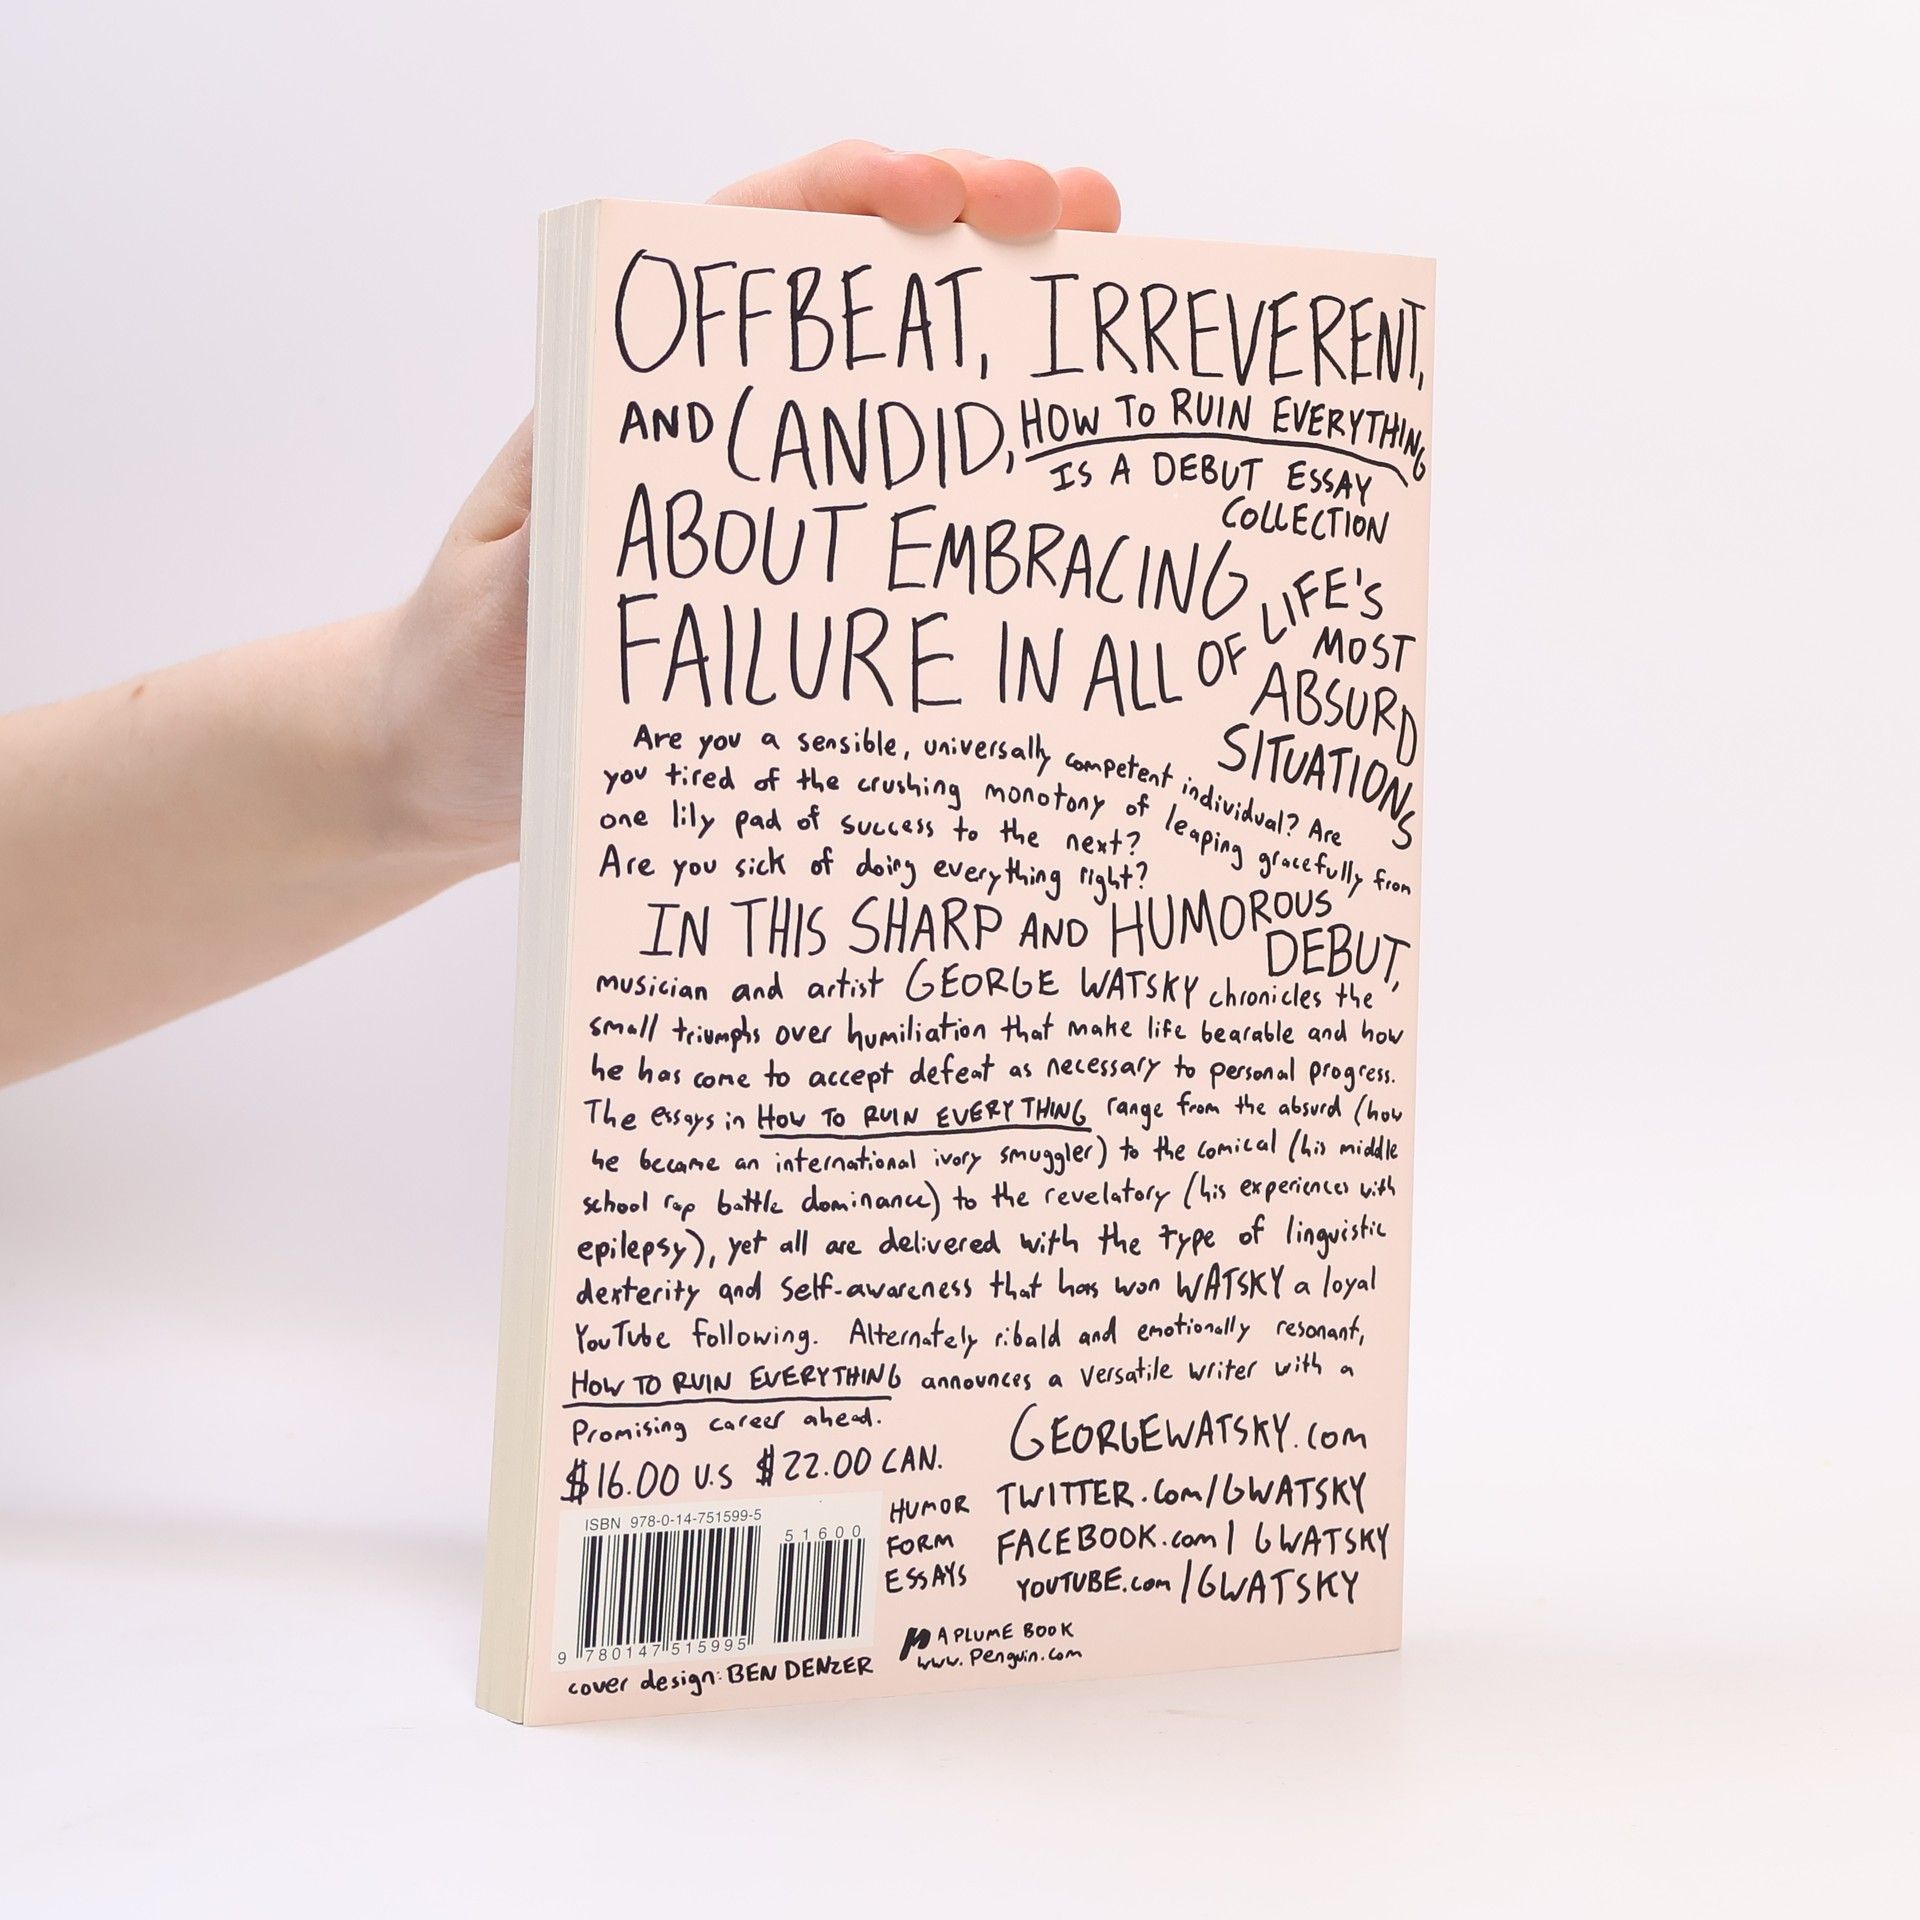 OFFBEAT, IRREVERENT,
AND CANDID, HOW TO RUIN EVERYTHING
IS A DEBUT ESSAY
COLLECTION
ABOUT EMBRACING
FAILURE IN ALL OF LIFE'S
MOST
ABSURD
SITUATIONS
Are you a sensible, universally competent individual? Are
you tired of the crushing monotony of leaping gracefully from
one lily pad of success to the next?
Are you sick of doing everything right?
IN THIS SHARP AND HUMOROUS
DEBUT,
musician and artist GEORGE WATSKY chronicles the
small triumphs over humiliation that make life bearable and how
he has come to accept defeat as necessary to personal progress.
The essays in HOW TO RUIN EVERYTHING range from the absurd (how
he became an international ivory smuggler) to the comical (his middle
school rap battle dominance) to the revelatory (his experiences with
epilepsy), yet all are delivered with the type of linguistic
dexterity and self-awareness that has won WATSKY a loyal
YouTube following. Alternately ribald and emotionally resonant,
HOW TO RUIN EVERYTHING announces a versatile writer with a
Promising career ahead.
$16.00 U.S $22.00 CAN.
ISBN 978-0-14-751599-5
51600
9 780147 515995
HUMOR
FORM
ESSAYS
GEORGEWATSKY.com
TWITTER.com/GWATSKY
FACEBOOK.com/GWATSKY
YOUTUBE.com/GWATSKY
A PLUME BOOK
www.Penguin.com
cover design: BEN DENZER